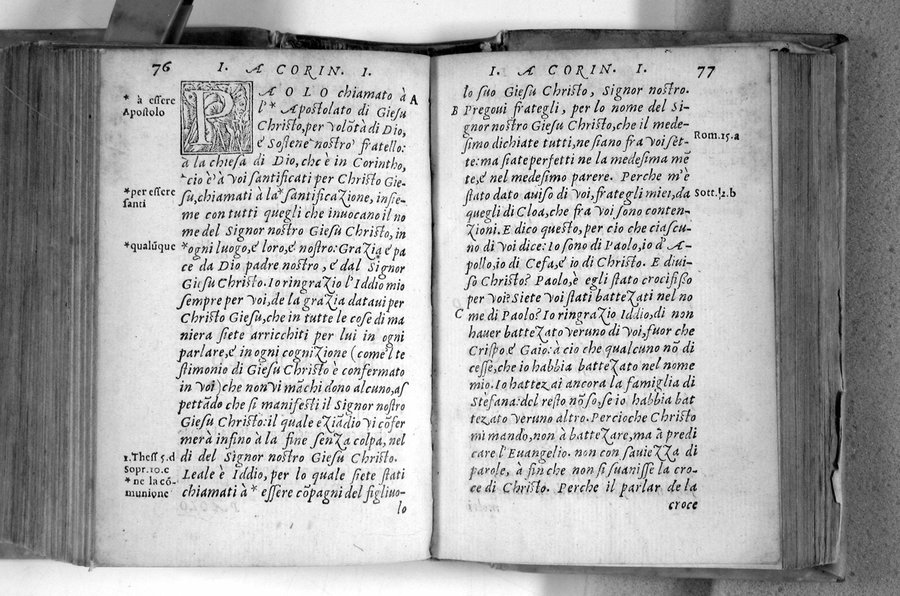 76 I. A CORIN. I.
* à essere
Apostolo
PAOLO chiamato à A
l'* Apostolato di Giesu
Christo, per volõtà di Dio,
e Sostene nostro fratello:
à la chiesa di Dio, che è in Corintho,
cio è à voi santificati per Christo Gie-
*per essere
santi
su, chiamati à la* santificazione, insie-
me con tutti quegli che inuocano il no
me del Signor nostro Giesu Christo, in
*qualũque
*ogni luogo, e loro, e nostro: Grazia e pa
ce da Dio padre nostro, e dal Signor
Giesu Christo. Io ringrazio l'Iddio mio
sempre per voi, de la grazia dataui per
Christo Giesu, che in tutte le cose di ma
niera siete arricchiti per lui in ogni
parlare, e in ogni cognizione (come'l te
stimonio di Giesu Christo è confermato
in voi) che non vi mãchi dono alcuno, as
pettãdo che si manifesti il Signor nostro
Giesu Christo: il quale eziãdio vi cõfer
merà infino à la fine senza colpa, nel
1. Thess 5.d
di del Signor nostro Giesu Christo.
Sopr. 10.c
Leale è Iddio, per lo quale siete stati
* ne la cõ-
munione
chiamati à * essere cõpagni del figliuo-
lo
I. A CORIN. I. 77
lo suo Giesu Christo, Signor nostro.
B Pregoui frategli, per lo nome del Si-
gnor nostro Giesu Christo, che il mede-
Rom. 15.a
simo dichiate tutti, ne siano fra voi set-
te: ma siate perfetti ne la medesima mẽ
te, e nel medesimo parere. Perche m'è
stato dato auiso di voi, frategli miei, da
Sott. 12.b
quegli di Cloa, che fra voi sono conten-
zioni. E dico questo, per cio che ciascu-
no di voi dice: Io sono di Paolo, io d' A-
pollo, io di Cefa, e io di Christo. E diui-
so Christo? Paolo, è egli stato crocifisso
per voi? Siete voi stati battezati nel no
C me di Paolo? Io ringrazio Iddio, di non
hauer battezato veruno di voi, fuor che
Crispo e Gaio: à cio che qualcuno nõ di
cesse, che io habbia battezato nel nome
mio. Io battezai ancora la famiglia di
Stefana: del resto nõ so, se io habbia bat
tezato veruno altro. Percioche Christo
mi mando, non à battezare, ma à predi
care l'Euangelio. non con sauiezza di
parole, à fin che non si suanisse la cro-
ce di Christo. Perche il parlar de la
croce